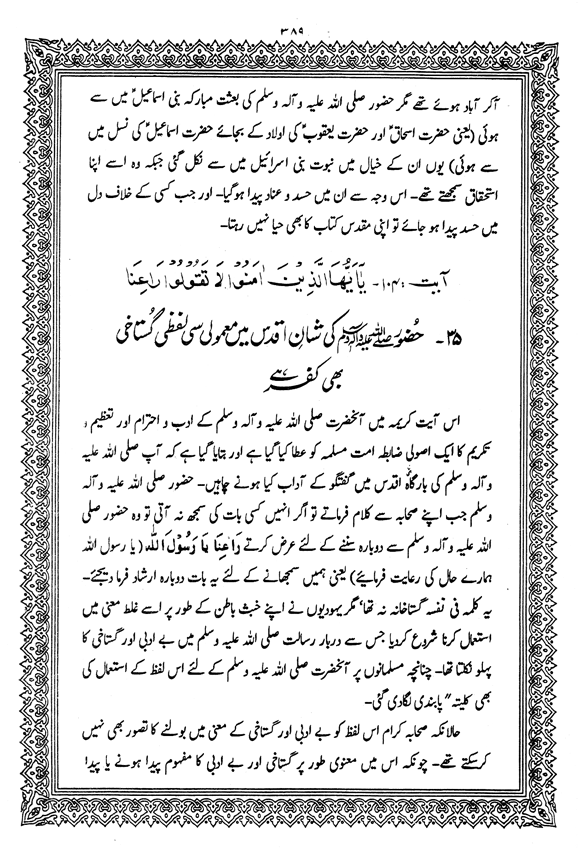 ۳۸۹
آکر آباد ہوئے تھے مگر حضور صلی اللہ علیہ و آلہ وسلم کی بعثت مبارکہ بنی اسماعیلؑ میں سے
ہوئی (یعنی حضرت اسحاقؑ اور حضرت یعقوبؑ کی اولاد کے بجائے حضرت اسماعیلؑ کی نسل میں
سے ہوئی) یوں ان کے خیال میں نبوت بنی اسرائیل میں سے نکل گئی جبکہ وہ اسے اپنا
استحقاق سمجھتے تھے۔ اس وجہ سے ان میں حسد و عناد پیدا ہوگیا۔ اور جب کسی کے خلاف دل
میں حسد پیدا ہو جائے تو اپنی مقدس کتاب کا بھی حیا نہیں رہتا۔
آیت :۱۰۴۔ یٰاَیُّهَا الَّذِیْنَ اٰمَنُوْا لَا تَقُوْلُوْا رَاعِنَا
۳۵۔ حضور صلی اللہ علیہ وآلہ وسلم کی شانِ اقدس میں معمولی سی لفظی گستاخی
بھی کفر ہے
اس آیت کریمہ میں آنحضرت صلی اللہ علیہ وسلم کے ادب و احترام اور تعظیم و
تکریم کا ایک اصولی ضابطہ امت مسلمہ کو عطا کیا گیا ہے اور بتایا گیا ہے کہ آپ صلی اللہ علیہ
و آلہ وسلم کی بارگاہِ اقدس میں گفتگو کے آداب کیا ہونے چاہئیں۔ حضور صلی اللہ علیہ و آلہ
وسلم جب اپنے صحابہ سے کلام فرماتے تو اگر انہیں کسی بات کی سمجھ نہ آتی تو وہ حضور صلی
اللہ علیہ و آلہ وسلم سے دوبارہ سننے کے لئے عرض کرتے رَاعِنَا یَا رَسُوْلَ اللّٰه (یا رسول اللہ
ہمارے حال کی رعایت فرمائیے) یعنی ہمیں سمجھانے کے لئے یہ بات دوبارہ ارشاد فرما دیجئے۔
یہ کلمہ فی نفسہ گستاخانہ نہ تھا‘ مگر یہودیوں نے اپنے خبث باطن کے طور پر اسے غلط معنی میں
استعمال کرنا شروع کردیا جس سے دربار رسالت صلی اللہ علیہ وسلم میں بے ادبی اور گستاخی کا
پہلو نکلتا تھا۔ چنانچہ مسلمانوں پر آنحضرت صلی اللہ علیہ وسلم کے لئے اس لفظ کے استعمال کی
بھی کلیتہ" پابندی لگادی گئی۔
حالانکہ صحابہ کرام اس لفظ کو بے ادبی اور گستاخی کے معنی میں بولنے کا تصور بھی نہیں
کرسکتے تھے۔ چونکہ اس میں معنوی طور پر گستاخی اور بے ادبی کا مفہوم پیدا ہونے یا پیدا